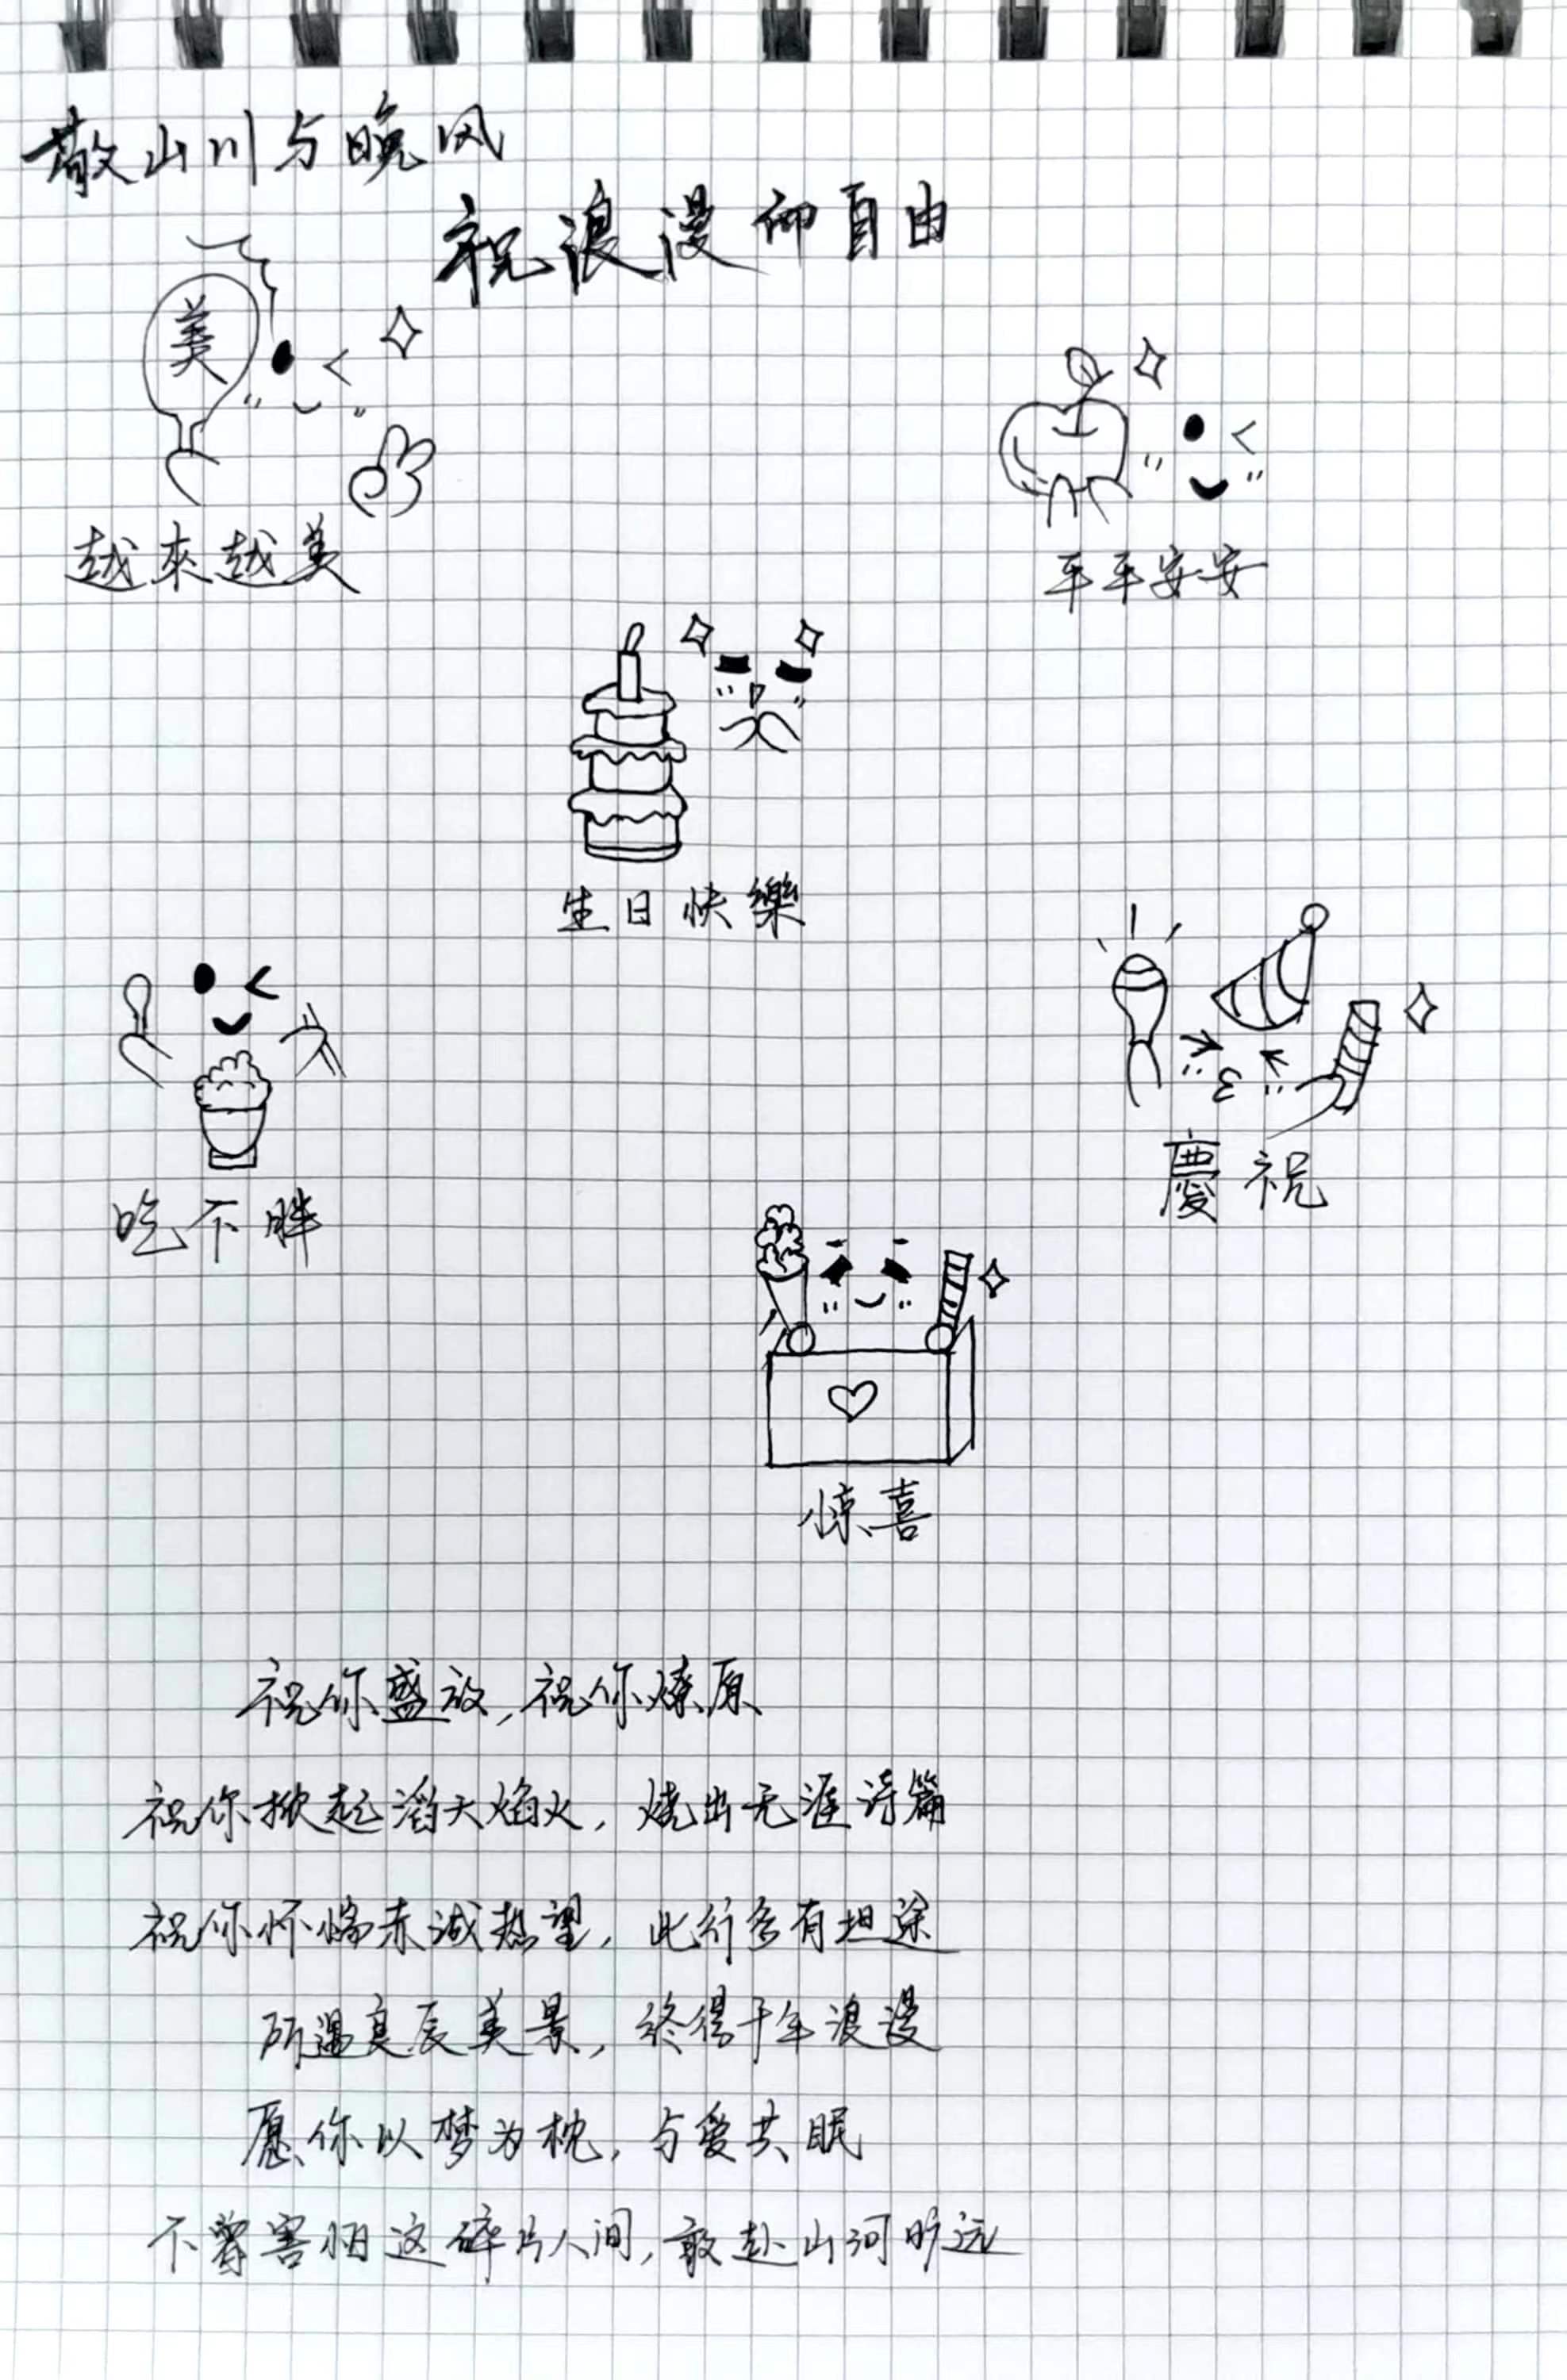 敬山川与晚风
祝浪漫和自由
美
越來越美
平平安安
生日快樂
吃不胖
慶祝
惊喜
祝你盛放,祝你燎原
祝你掀起滔天焰火,烧出无涯诗篇
祝你怀惴赤诚热望,此行多有坦途
所遇良辰美景,终得千年浪漫
愿你以梦为枕,与爱共眠
不曾害怕这碎片人间,敢赴山河旷远